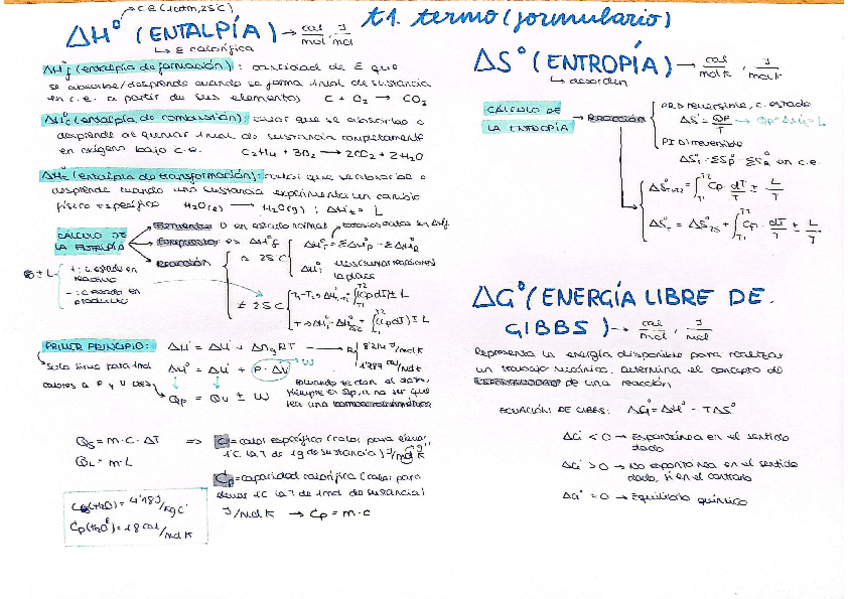 t1. termo (formulario)
c.e (1atm, 25C)
ΔH° (ENTALPÍA) → cal/mol, J/mol
↳ E calorífica
ΔHf° (entalpía de formación): cantidad de E que
se absorbe/desprende cuando se forma 1mol de sustancia
en c.e. a partir de sus elementos) C + O2 → CO2
ΔHc° (entalpía de combustión): calor que se absorbe o
desprende al quemar 1mol de sustancia completamente
en oxígeno bajo c.e. C2H4 + 3O2 → 2CO2 + 2H2O
ΔHt° (entalpía de transformación): calor que se absorbe o
desprende cuando una sustancia experimenta un cambio
físico específico H2O(l) → H2O(g) ; ΔH°t = L
CÁLCULO DE
LA ENTALPÍA
Elementos 0 en estado normal
Compuestos es ΔH°f
Reacción
a 25C
≠ 25C
± L
+: c. estado en
reactivo
-: c. estado en
producto
PRIMER PRINCIPIO: ΔH = ΔU + ΔngRT → R
Solo sirve para mol
ΔH° = ΔU° + P·ΔV → W
calores a P y V
Qp = Qv ± W
Qs = m·c·ΔT ⇒ c = calor específico (calor para elevar
1C la T de 1g de sustancia) J/
QL = m·L
Cp = capacidad calorífica (calor para
elevar 1C la T de 1mol de sustancia)
J/molK → Cp = m·c
Ce(H2O) = 4'18J/KgC
Cp(H2O) = 18cal/molK
ΔS° (ENTROPÍA) → cal/molK, J/molK
↳ desorden
CÁLCULO DE
LA ENTROPÍA → Reacción
reversible, c. estado
ΔS = Qp/T → Qp = ΔH = L
irreversible
ΔS°r = ΣS°P - ΣS°R en c.e.
ΔS°T1→T2 = ∫T1 T2 Cp · dT/T ± L/T
ΔS°r = ΔS°25 + ∫T1 T2 Cp · dT/T ± L/T
ΔG° (ENERGÍA LIBRE DE
GIBBS) → cal/mol, J/mol
Representa la energía disponible para realizar
un trabajo mecánico, determina el concepto de
de una reacción
ECUACIÓN DE GIBBS: ΔG° = ΔH° - TΔS°
ΔG < 0 → Espontánea en el sentido
dado
ΔG > 0 → No espontánea en el sentido
dado, sí en el contrario
ΔG° = 0 → Equilibrio químico